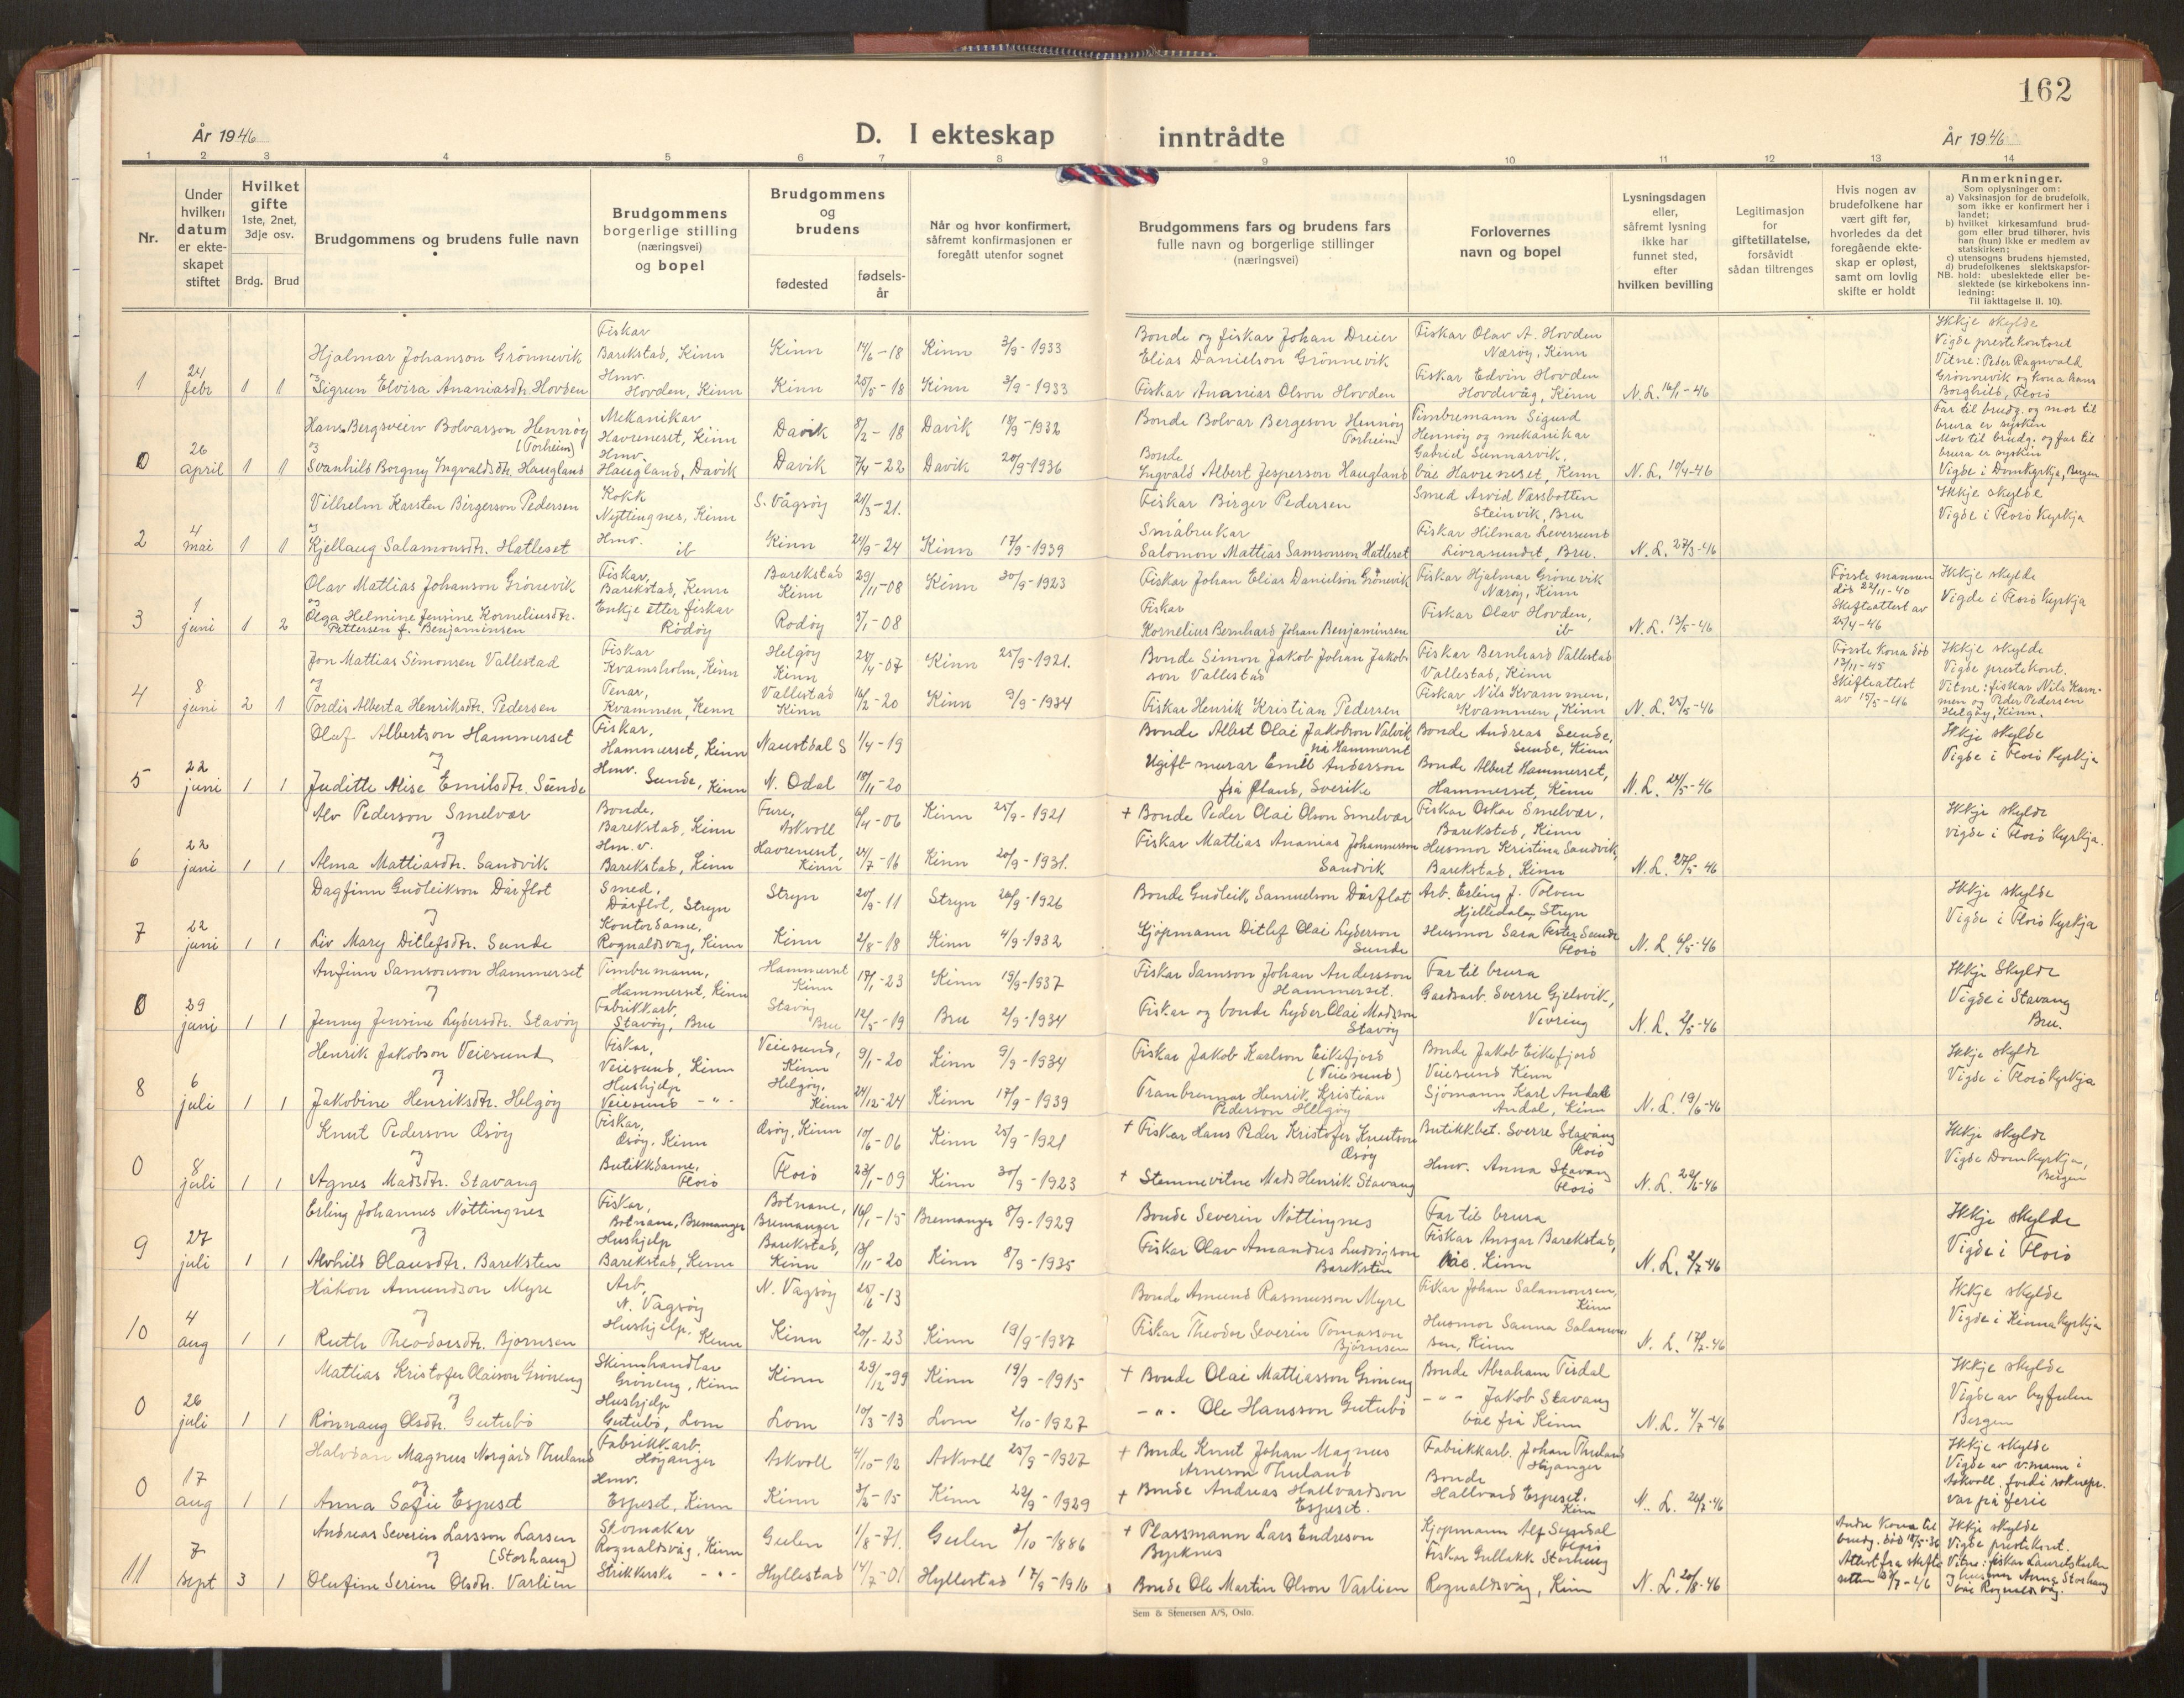 162
År 1946
D. I ekteskap inntrådte
År 1946
1 2 3 4 5 6 7 8 9 10 11 12 13 14
Nr.
Under hvilken datum er ekteskapet stiftet
Hvilket gifte 1ste, 2net, 3dje osv.
Brdg. Brud
Brudgommens og brudens fulle navn
Brudgommens borgerlige stilling (næringsvei) og bopel
Brudgommens og brudens
fødested
fødselsår
Når og hvor konfirmert, såfremt konfirmasjonen er foregått utenfor sognet
Brudgommens fars og brudens fars fulle navn og borgerlige stillinger (næringsvei)
Forlovernes navn og bopel
Lysningsdagen eller, såfremt lysning ikke har funnet sted, efter hvilken bevilling
Legitimasjon for giftetillatelse, forsåvidt sådan tiltrenges
Hvis nogen av brudefolkene har vært gift før, hvorledes da det foregående ekteskap er opløst, samt om lovlig skifte er holdt
Anmerkninger.
Som oplysninger om:
a) Vaksinasjon for de brudefolk, som ikke er konfirmert her i landet;
b) hvilket kirkesamfund brudgom eller brud tilhører, hvis han (hun) ikke er medlem av statskirken;
c) utensogns brudens hjemsted,
d) brudefolkenes slektskapsforhold: ubeslektede eller beslektede (se kirkebokens innledning:
NB.
Til iakttagelse II. 10).
1 24 febr 1 1
Hjalmar Johanson Grönnevik
og Sigrun Elvira Ananiasdtr. Hovden
Fiskar Barekstad, Kinn
Hmv. Hovden, Kinn
Kinn 14/6-18 Kinn 3/9-1933
Kinn 25/5-18 Kinn 3/9-1933
Bonde og fiskar Johan Dreier Elias Danielson Grönnevik
Fiskar Ananias Olson Hovden
Fiskar Olav A. Hovden Nærøy, Kinn
Fiskar Edvin Hovden Hovdevåg, Kinn
N.L. 16/1-46
Ikkje skylde
Vigde prestekontoret
Vitne: Peder Ragnvald
Grönnevik og kona hans
Borghild, Florö
0 26 april 1 1
Hans Bergsvein Bolvarson Hennøy (Torheim)
og
Svanhild Borgny Ingvaldsdtr. Haugland
Mekanikar Havreneset, Kinn
Hmv. Haugland, Davik
Davik 8/2-18 Davik 18/9-1932
Davik 7/4-22 Davik 20/9-1936
Bonde Bolvar Bergeson Hennøy Torheim
Bonde Ingvald Albert Jesperson Haugland
Timbremann Sigurd Hennøy og mekanikar
Gabriel Gunnarvik, båe Havreneset, Kinn
N.L. 10/4-46
Far til brudg. og mor til
brura er sysken
Mor til brudg. og far til
brura er sysken
Vigde i Domkyrkja, Bergen
2 4 mai 1 1
Vilhelm Karsten Birgerson Pedersen
og
Kjellaug Salamonsdtr. Hatleset
Kokk Nyttingnes, Kinn
Hmv. ib
S. Vågsøy 21/3-21.
Kinn 24/9-24 Kinn 17/9-1939
Fiskar Birger Pedersen
Småbrukar Salomon Mattias Samsonson Hatleset
Smed Arvid Vassbotten Steinvik, Bru
Fiskar Hilmar Leversund Livrasundet, Bru.
N.L. 27/3-46
Ikkje skylde
Vigde i Florö Kyrkja
3 1 juni 1 2
Olav Mattias Johanson Grönevik
og
Olga Helmine Jensine Korneliusdtr.
Pettersen f. Benjaminsen
Fiskar, Barekstad, Kinn
Enkje etter fiskar Rödöy
Barekstad Kinn 29/11-08 Kinn 30/9-1923
Rödöy 5/1-08
Fiskar Johan Elias Danielson Grönevik
Fiskar Kornelius Bernhard Johan Benjaminsen
Fiskar Hjalmar Grönevik Nærøy, Kinn
Fiskar Olav Hovden, ib
N.L. 13/5-46
Förste mannen
död 22/11-40
Skifteattest av
25/4-46
Ikkje skylde
Vigde i Florö Kyrkja
4 8 juni 2 1
Jon Mattias Simonsen Vallestad
og
Tordis Alberta Henriksdtr. Pedersen
Fiskar Kvamsholm, Kinn
Tenar, Kvammen, Kinn
Helgøy Kinn 28/4-07 Kinn 25/9-1921.
Vallestad Kinn 16/2-20 Kinn 9/9-1934
Bonde Simon Jakob Johan Jakobson Vallestad
Fiskar Henrik Kristian Pedersen
Fiskar Bernhard Vallestad Vallestad, Kinn
Fiskar Nils Kvammen, Kvammen, Kinn
N.L. 25/5-46
Förste kona död
13/11-45
Skifteattest
av 15/5-46
Ikkje skylde
Vigde prestekont.
Vitne: fiskar Nils Kvammen
og Peder Pedersen
Helgøy, Kinn.
5 22 juni 1 1
Oluf Albertson Hammerset
og
Juditte Alise Emilsdtr. Sunde
Fiskar, Hammerset, Kinn
Hmv. Sunde, Kinn
Naustdal S 1/4-19
N. Odal 18/11-20
Bonde Albert Olai Jakobson Valvik på Hammerset
Ugift murar Emil Anderson frå Øland, Sverike
Bonde Andreas Sunde, Sunde, Kinn
Bonde Albert Hammerset, Hammerset, Kinn
N.L. 28/5-46
Ikkje skylde
Vigde i Florö Kyrkje
6 22 juni 1 1
Alv Pederson Smelvær
og
Alma Mattiasdtr. Sandvik
Bonde, Barekstad, Kinn
Hm.v. Barekstad, Kinn
Fure, Askvoll 6/4-06 Kinn 25/9-1921
Havreneset, Kinn 24/7-16 Kinn 20/9-1931.
+ Bonde Peder Olai Olson Smelvær
Fiskar Mattias Ananias Johannesson Sandvik
Fiskar Oskar Smelvær, Barekstad, Kinn
Husmor Kristina Sandvik, Barekstad, Kinn
N.L. 27/5-46
Ikkje skylde
vigde i Florö Kyrkja.
7 22 juni 1 1
Dagfinn Gudleikson Dårflot
og
Liv Mary Ditlefsdtr. Sunde
Smed, Dårflot, Stryn
Kontordame, Rognaldsvåg, Kinn
Stryn 20/9-11 Stryn 26/9-1926
Kinn 2/8-18 Kinn 4/9-1932
Bonde Gudleik Samuelson Dårflot
Kjøpmann Ditlef Olai Lyderson Sunde
Arb. Erling J. Tolven Hjelledalen, Stryn
Husmor Sara Sunde Florö
N.L. 6/5-46
Ikkje skylde
Vigde i Florö Kyrkja
0 29 juni 1 1
Anfinn Samsonson Hammerset
og
Jenny Jensine Lydersdtr. Stavøy
Timbremann, Hammerset, Kinn
Fabrikkarb, Stavøy, Bru
Hammerset Kinn 17/1-23 Kinn 19/9-1937
Stavøy Bru 12/5-19 Bru 2/9-1934
Fiskar Samson Johan Andersson Hammerset.
Fiskar og bonde Lyder Olai Madsson Stavøy
Far til brura
Gardsarb. Sverre Gjelsvik, Vevring
N.L. 2/5-46
Ikkje Skylde
Vigde i Stavang
Bru.
8 6 juli 1 1
Henrik Jakobson Veiesund
og
Jakobine Henriksdtr. Helgøy
Fiskar, Veiesund, Kinn
Hushjelp Veiesund -"-
Veiesund, Kinn 9/1-20 Kinn 9/9-1934
Helgøy, Kinn 24/12-24 Kinn 17/9-1939
Fiskar Jakob Karlson Eikefjord (Veiesund)
Tranbrennar Henrik Kristian Pederson Helgøy
Bonde Jakob Eikefjord Veiesund Kinn
Sjömann Karl Andal Andal, Kinn
N.L. 19/6-46
Ikkje skylde
Vigde i Florö Kyrkja
0 8 juli 1 1
Knut Pederson Øsøy
og
Agnes Madsdtr. Stavang
Fiskar, Øsøy, Kinn
Butikkdame, Florö
Øsøy, Kinn 10/6-06 Kinn 25/9-1921
Florö 23/1-09 Kinn 30/9-1923
+ Fiskar Hans Peder Kristofer Knutson Øsøy
+ Stemnevitne Mads Henrik Stavang
Butikkbet. Sverre Stavang Florö
Hmv. Anna Stavang Florö
N.L. 22/6-46
Ikkje skylde
Vigde Domkyrkja,
Bergen
9 27 juli 1 1
Erling Johannes Nöttingnes
og
Alvhild Olausdtr. Bareksten
Fiskar, Botnane, Bremanger
Hushjelp Barekstad, Kinn
Botnane, Bremanger 16/1-15 Bremanger 8/9-1929
Barekstad, Kinn 13/11-20 Kinn 8/9-1935
Bonde Severin Nöttingnes
Fiskar Olav Amandus Ludvigson Bareksten
Far til brura
Fiskar Ansgar Barekstad, båe Kinn
N.L. 2/7-46
Ikkje skylde
Vigde i Florö
10 4 aug 1 1
Håkon Amundson Myre
og
Ruth Theodorsdtr. Bjørnsen
Arb, N. Vågsøy
Hushjelp, Kinn
N. Vågsøy 25/6-13
Kinn 20/1-23 Kinn 19/9-1937
Bonde Amund Rasmusson Myre
Fiskar Theodor Severin Tomasson Bjørnsen
Fiskar Johan Salamonsen, Kinn
Husmor Sanna Salamonsen, Kinn
N.L. 17/7-46
Ikkje skylde
Vigde i Kinnakyrkja
0 26 juli 1 1
Mattias Kristofer Olaison Gröneng
og
Rönnaug Olsdtr. Gutubö
Skinnhandlar Gröneng, Kinn
Hushjelp Gutubö, Lom
Kinn 29/12-99 Kinn 19/9-1915
Lom 10/3-13 Lom 2/10-1927
+ Bonde Olai Mattiasson Gröneng
-"- Ole Hansson Gutubö
Bonde Abraham Tisdal
-"- Jakob Stavang
båe frå Kinn
N.L. 4/7-46
Ikkje skylde
Vigde av byfuten
Bergen
0 17 aug 1 1
Halvdan Magnus Norgård Thuland
og
Anna Sofie Espeset
Fabrikkarb. Høyanger
Hmv. Espeset, Kinn
Askvoll 4/10-12 Askvoll 25/9-1927
Kinn 3/2-15 Kinn 22/9-1929
+ Bonde Knut Johan Magnus Arneson Thuland
+ Bonde Andreas Hallvardson Espeset.
Fabrikkarb. Johan Thuland Høyanger
Bonde Hallvard Espeset, Kinn
N.L. 26/7-46
Ikkje skylde
Vigde av v.mann i
Askvoll, fordi soknepr.
var på ferie
11 7 sept 3 1
Andreas Severin Larsson Larsen
(Storhaug)
og
Olufine Serine Olsdtr. Varlien
Skomakar Rognaldsvåg, Kinn
Strikkerske -"-
Gulen 1/8-71. Gulen 3/10-1886
Hyllestad 14/7-01 Hyllestad 17/9-1916
+ Plassmann Lars Endreson Byrknes
Bonde Ole Martin Olson Varlien
Kjøpmann Alf Florö
Fiskar Gullakk Storhaug Rognaldsvåg, Kinn
N.L. 20/8-46
Andre kona til
brudg. död 18/5-36
Attest frå skifteretten
Ikkje skylde
Vigde prestekont.
Vitne: fiskar Laurits
og husmor Anna Storhaug
båe Rognaldsvåg.
Sem & Stenersen A/S, Oslo.